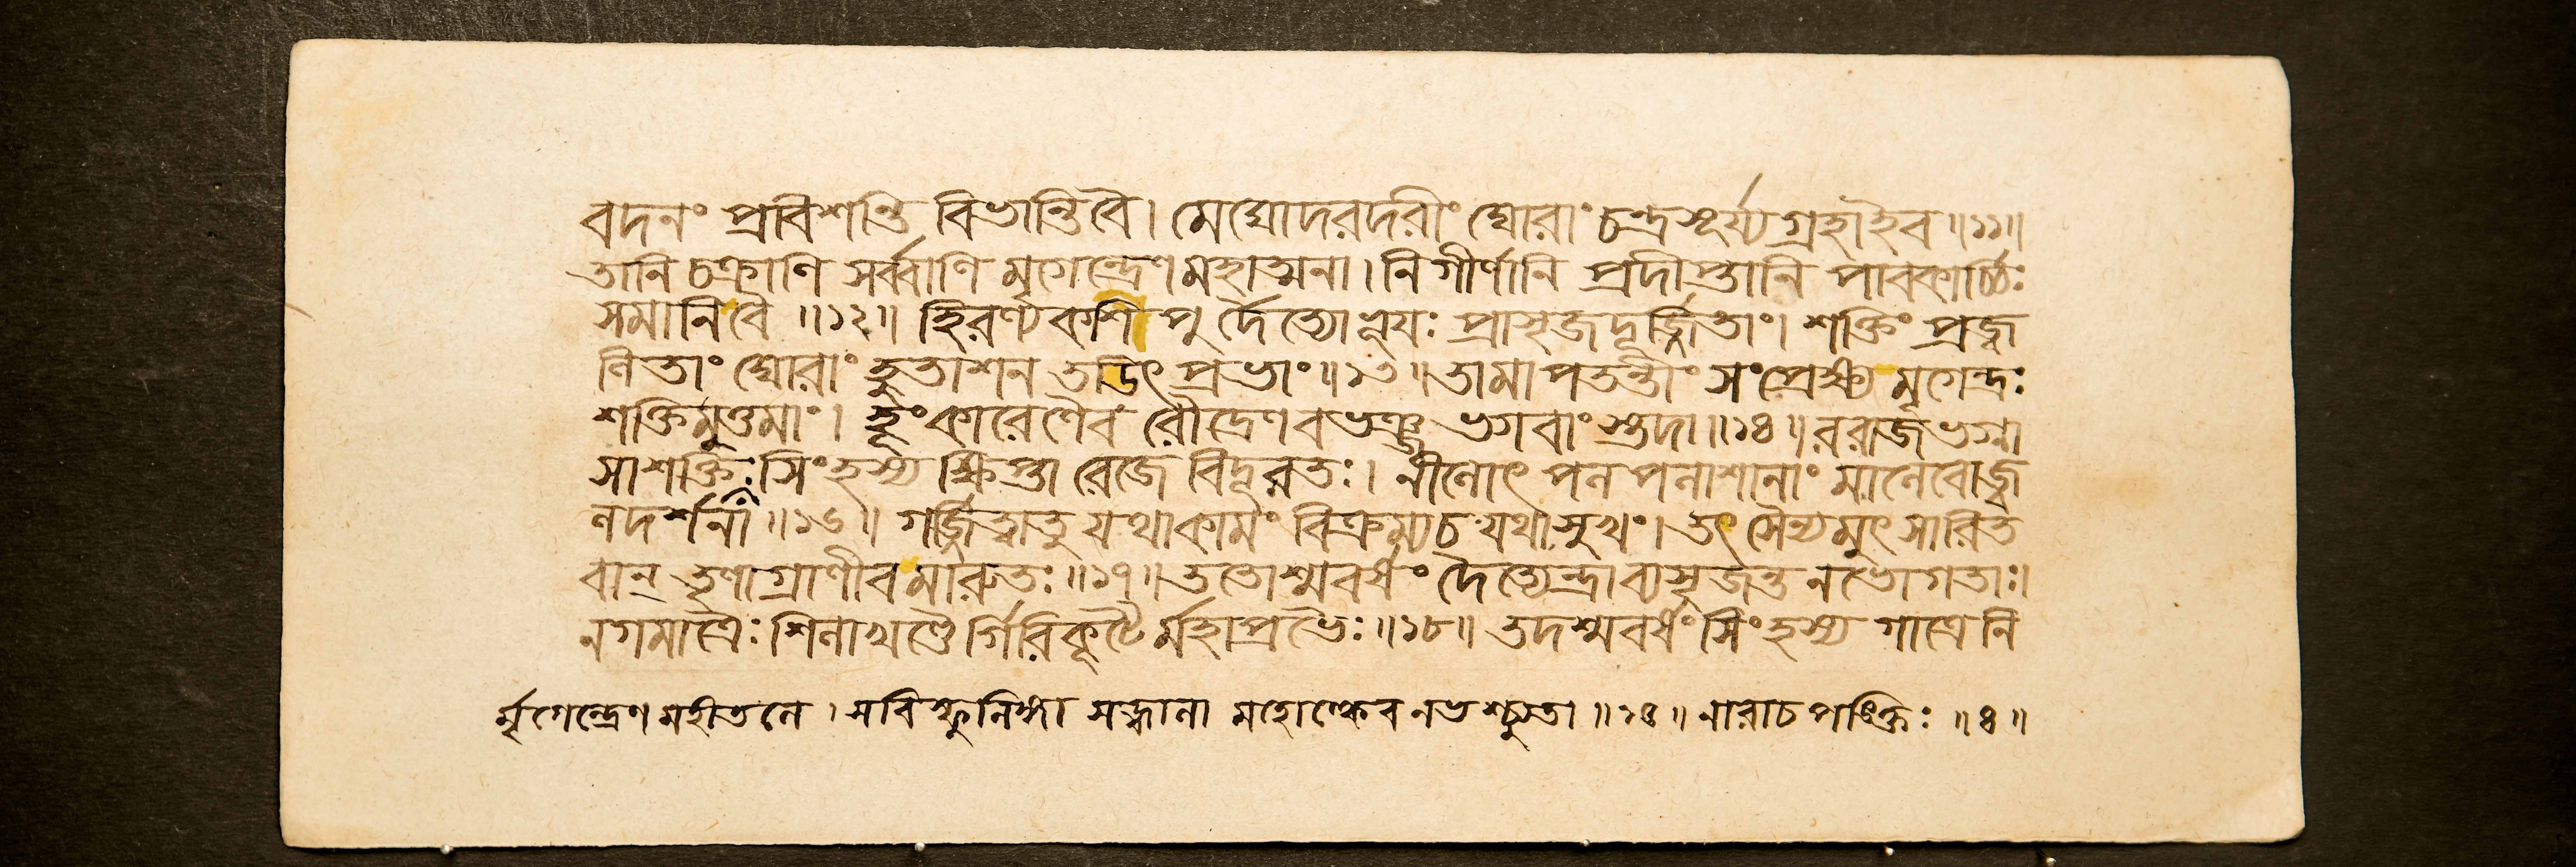 বদনং প্রবিশন্তি বিভান্তিবৈ। মেঘোদরদরীং ঘোরাং চন্দ্রসূর্য্যগ্রহাইব॥১১॥
তানি চক্রাণি সর্ব্বাণি মৃগেন্দ্রেণমহাত্মনা। নিগীর্ণানি প্রদীপ্তানি পাবকার্চ্চিঃ
সমানিবৈ ॥১২॥ হিরণ্যকশিপুর্দৈত্যোভূয়ঃ প্রাসৃজদূর্জ্জিতাং। শক্তিং প্রজ্ব
লিতাং ঘোরাং হুতাশন তডিৎপ্রভাং॥১৩॥তামাপতন্তীং সংপ্রেক্ষ্য মৃগেন্দ্রঃ
শক্তিমুত্তমাং। হূংকারেণৈব রৌদ্রেণবভঞ্জ ভগবাংস্তদা॥১৪॥ররাজভগ্না
সাশক্তিঃ সিংহস্য ক্ষিপ্তা রেজে বিদূরতঃ। নীলোৎপলপলাশানাং মালেবোজ্জ্ব
লদর্শনা॥১৬॥ গর্জ্জিত্বাতু যথাকামং বিক্রম্যচ যথাসুখং। তৎসৈন্যমুৎসারিত
বান্ তৃণাগ্রাণীবমারুতঃ॥১৭॥ততোশ্মবর্ষং দৈত্যেন্দ্রাব্যসৃজন্ত নভোগতাঃ।
নগমাত্রৈঃ শিলাখণ্ডৈর্গিরিকূটৈর্মহাপ্রভৈঃ॥১৮॥ তদশ্মবর্ষং সিংহস্য গাত্রেনি
র্মৃগেন্দ্রেণমহীতলে। সবিস্ফুলিঙ্গা সজ্বালা মহোল্কেবনভশ্চ্যুতা॥১৫॥নারাচপঙক্তিঃ॥৪॥